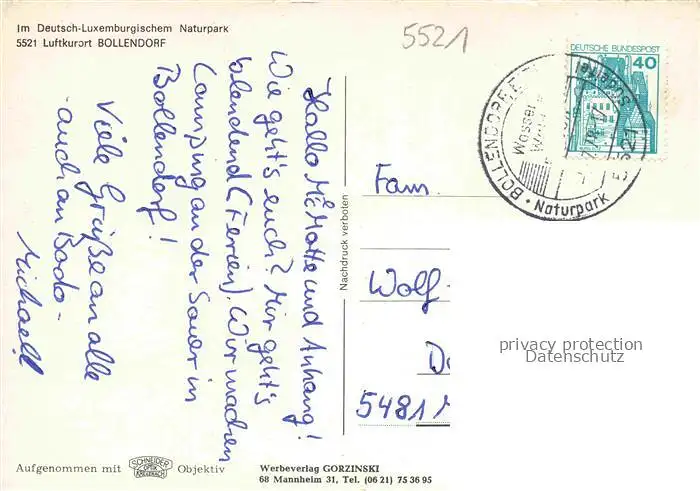 Im Deutsch-Luxemburgischem Naturpark
5521 Luftkurort BOLLENDORF
5521
DEUTSCHE BUNDESPOST
40
BOLLENDORF
Südeifel
Wasser
Wald
5521
Naturpark
Hallo Motte und Anhang!
Wie geht's euch? Mir geht's
blendend (Ferien). Wir machen
Camping an der Sauer in
Bollendorf!
Viele Grüße an alle
- auch an Bodo -
Michael!
Nachdruck verboten
Fam.
Wolf
5481
privacy protection
Datenschutz
Aufgenommen mit SCHNEIDER OPTIK KREUZNACH Objektiv
Werbeverlag GORZINSKI
68 Mannheim 31, Tel. (06 21) 75 36 95